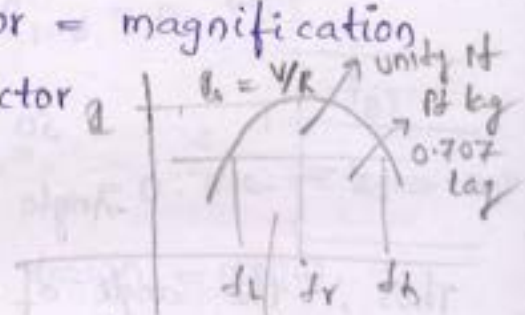 or = magnification
ctor
I
I₀ = V/R
unity pf
pf lag
0.707
lag
fL fr fh